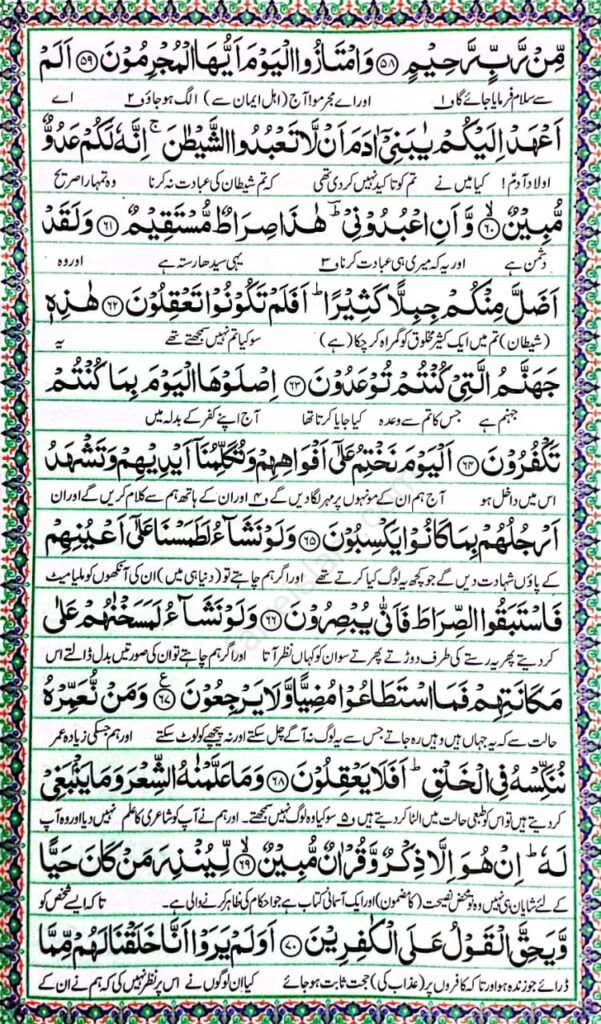 مِّنْ رَّبٍّ رَّحِيْمٍ ﴿۵۸﴾ وَامْتَازُوا الْيَوْمَ اَيُّهَا الْمُجْرِمُوْنَ ﴿۵۹﴾ اَلَمْ
سے سلام فرمایا جائے گا ۱ اور اے مجرمو! آج (اہل ایمان سے) الگ ہو جاؤ ۲ اے
اَعْهَدْ اِلَيْكُمْ يٰبَنِيْٓ اٰدَمَ اَنْ لَّا تَعْبُدُوا الشَّيْطٰنَ ۚ اِنَّهٗ لَكُمْ عَدُوٌّ
اولاد آدم! کیا میں نے تم کو تاکید نہیں کر دی تھی کہ تم شیطان کی عبادت نہ کرنا وہ تمہارا صریح
مُّبِيْنٌ ﴿۶۰﴾ وَّاَنِ اعْبُدُوْنِيْ ؕ هٰذَا صِرَاطٌ مُّسْتَقِيْمٌ ﴿۶۱﴾ وَلَقَدْ
دشمن ہے اور یہ کہ میری ہی عبادت کرنا ۳ یہی سیدھا رستہ ہے اور وہ
اَضَلَّ مِنْكُمْ جِبِلًّا كَثِيْرًا ؕ اَفَلَمْ تَكُوْنُوْا تَعْقِلُوْنَ ﴿۶۲﴾ هٰذِهٖ
(شیطان) تم میں ایک کثیر مخلوق کو گمراہ کر چکا (ہے) سو کیا تم نہیں سمجھتے تھے یہ
جَهَنَّمُ الَّتِيْ كُنْتُمْ تُوْعَدُوْنَ ﴿۶۳﴾ اِصْلَوْهَا الْيَوْمَ بِمَا كُنْتُمْ
جہنم ہے جس کا تم سے وعدہ کیا جایا کرتا تھا آج اپنے کفر کے بدلہ میں
تَكْفُرُوْنَ ﴿۶۴﴾ اَلْيَوْمَ نَخْتِمُ عَلٰٓى اَفْوَاهِهِمْ وَتُكَلِّمُنَآ اَيْدِيْهِمْ وَتَشْهَدُ
اس میں داخل ہو آج ہم ان کے مونہوں پر مہر لگا دیں گے ۴ اور ان کے ہاتھ ہم سے کلام کریں گے اور ان
اَرْجُلُهُمْ بِمَا كَانُوْا يَكْسِبُوْنَ ﴿۶۵﴾ وَلَوْ نَشَآءُ لَطَمَسْنَا عَلٰٓى اَعْيُنِهِمْ
کے پاؤں شہادت دیں گے جو کچھ یہ لوگ کیا کرتے تھے اور اگر ہم چاہتے تو (دنیا ہی میں) ان کی آنکھوں کو ملیامیٹ
فَاسْتَبَقُوا الصِّرَاطَ فَاَنّٰى يُبْصِرُوْنَ ﴿۶۶﴾ وَلَوْ نَشَآءُ لَمَسَخْنٰهُمْ عَلٰى
کر دیتے پھر یہ رستے کی طرف دوڑتے پھرتے سو ان کو کہاں نظر آتا اور اگر ہم چاہتے تو ان کی صورتیں بدل ڈالتے اس
مَكَانَتِهِمْ فَمَا اسْتَطَاعُوْا مُضِيًّا وَّلَا يَرْجِعُوْنَ ﴿۶۷﴾ ع وَمَنْ نُّعَمِّرْهُ
حالت سے کہ یہ جہاں ہیں وہیں رہ جاتے جس سے یہ لوگ نہ آگے چل سکتے اور نہ پیچھے کو لوٹ سکتے اور ہم جسکی زیادہ عمر
نُنَكِّسْهُ فِي الْخَلْقِ ؕ اَفَلَا يَعْقِلُوْنَ ﴿۶۸﴾ وَمَا عَلَّمْنٰهُ الشِّعْرَ وَمَا يَنْۢبَغِيْ
کر دیتے ہیں تو اس کو طبعی حالت میں الٹا کر دیتے ہیں ۵ سو کیا وہ لوگ نہیں سمجھتے۔ اور ہم نے آپ کو شاعری کا علم نہیں دیا اور وہ آپ
لَهٗ ؕ اِنْ هُوَ اِلَّا ذِكْرٌ وَّقُرْاٰنٌ مُّبِيْنٌ ﴿۶۹﴾ لِّيُنْذِرَ مَنْ كَانَ حَيًّا
کے لئے شایان ہی نہیں وہ تو محض نصیحت (کا مضمون) اور ایک آسمانی کتاب ہے جو احکام کی ظاہر کرنے والی ہے۔ تا کہ ایسے شخص کو
وَّيَحِقَّ الْقَوْلُ عَلَى الْكٰفِرِيْنَ ﴿۷۰﴾ اَوَلَمْ يَرَوْا اَنَّا خَلَقْنَا لَهُمْ مِّمَّا
ڈرائے جو زندہ ہو اور تا کہ کافروں پر (عذاب کی) حجت ثابت ہو جائے کیا ان لوگوں نے اس پر نظر نہیں کی کہ ہم نے ان کے